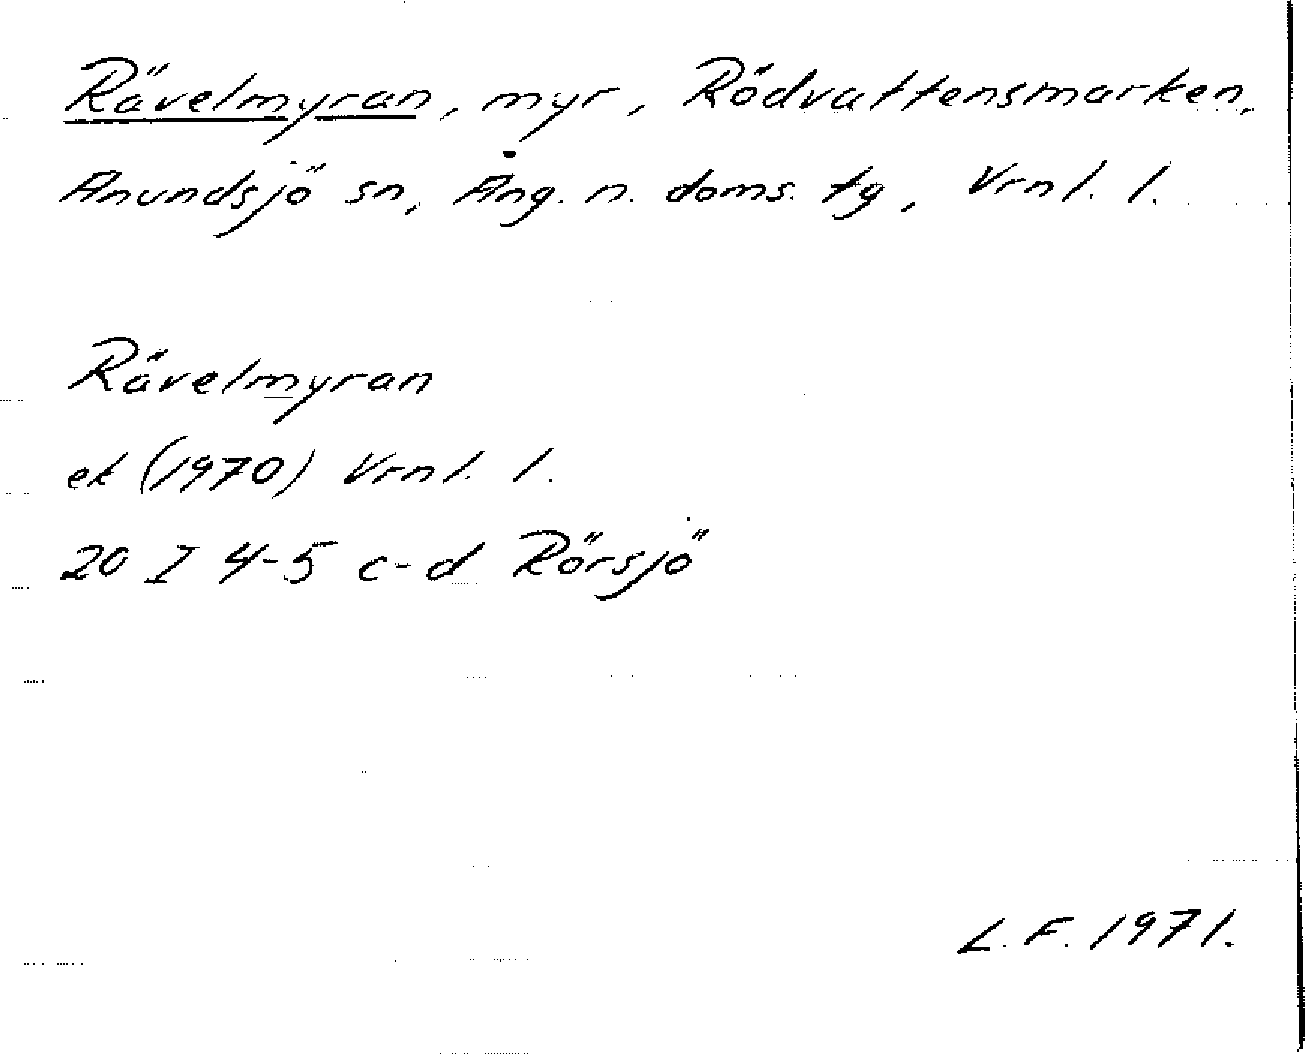 Rävelmyran, myr, Rödvattensmarken,
Anundsjö sn, Ång. n. doms. tg, Vrnl. l.
Rävelmyran
ek (1970) Vrnl. l.
20 I 4-5 c-d Rörsjö
L. F. 1971.